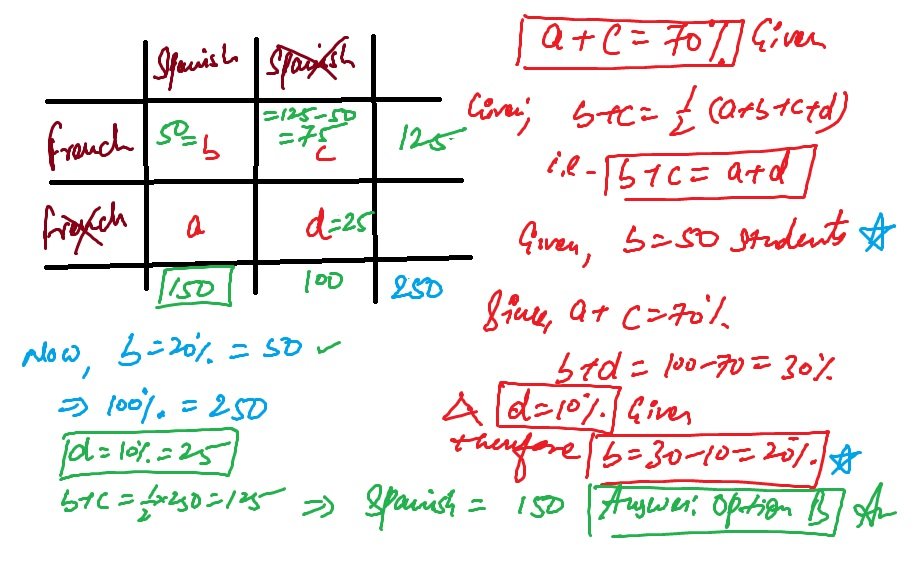 Spanish Spanish
French 50 = b = 125 - 50 = 75 c 125
French a d = 25
150 100 250
Now, b = 20% = 50 ✓
⇒ 100% = 250
d = 10% = 25
b + c = 1/2 × 250 = 125 ⇒ Spanish = 150 Answer: Option B
a + c = 70% Given
Given, b + c = 1/2 (a + b + c + d)
i.e - b + c = a + d
Given, b = 50 students ☆
Since, a + c = 70%
b + d = 100 - 70 = 30%
d = 10% Given
therefore b = 30 - 10 = 20% ☆